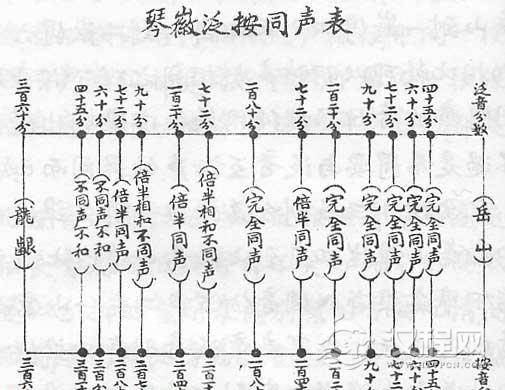 琴徽泛按同声表
泛音分数
四十五分
六十分
七十二分
九十分
一百二十分
七十二分
一百八十分
七十二分
一百二十分
九十分
七十二分
六十分
四十五分
三百六十分
（岳山）
（完全同声）
（完全同声）
（完全同声）
（完全同声）
（完全同声）
（倍半同声）
（完全同声）
（倍半相和不同声）
（倍半同声）
（倍半相和不同声）
（倍半同声）
（不同声不和）
（不同声不和）
（龍齦）
按音
四十五
六十
七十
九十
一百二
一百四
一百八
二百
二百四
二百七
二百八
三百
三百
三百六
汉程网